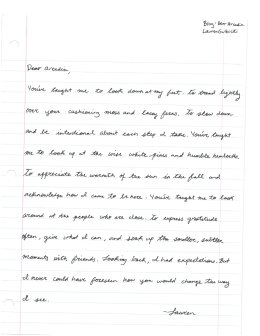 Blog: Dear Arcadia
Dear Arcadia,
You've taught me to look down at my feet. to tread lightly
over your cushioning moss and lacey ferns. To slow down
and be intentional about each step I take. You've taught
me to look up at the wise white pines and humble hemlocks.
To appreciate the warmth of the sun in the fall and
acknowledge how I came to be here. You've taught me to look
around at the people who are close. to express gratitude
often, give what I can, and soak up the smaller, subtler
moments with friends. Looking back, I had expectations. But
I never could have foreseen how you would change the way
I see.
- Lauren